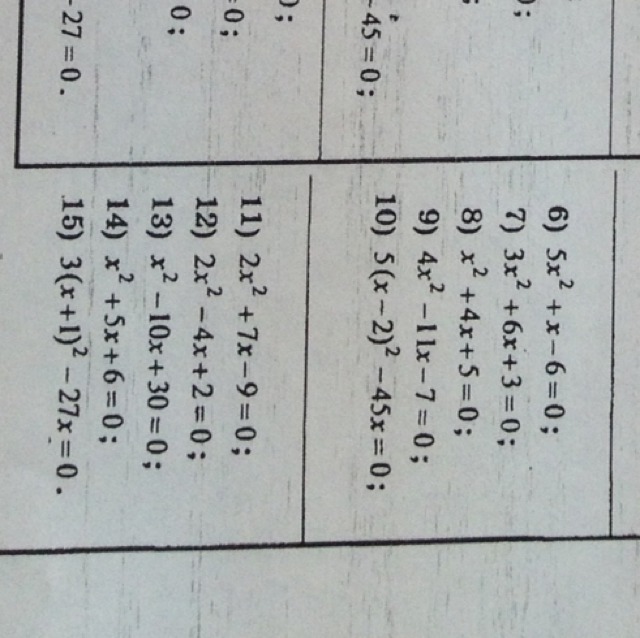 );
;
-45=0;
);
=0;
0;
-27=0.
6) 5x²+x-6=0;
7) 3x²+6x+3=0;
8) x²+4x+5=0;
9) 4x²-11x-7=0;
10) 5(x-2)²-45x=0;
11) 2x²+7x-9=0;
12) 2x²-4x+2=0;
13) x²-10x+30=0;
14) x²+5x+6=0;
15) 3(x+1)²-27x=0.